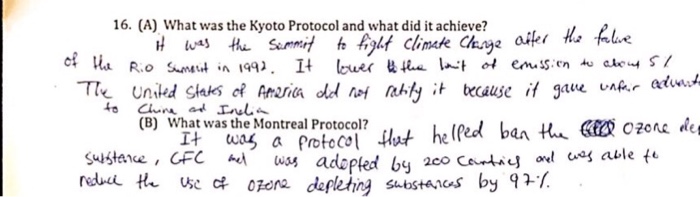 16. (A) What was the Kyoto Protocol and what did it achieve?
It was the Summit to fight Climate Change after the failure
of the Rio Summit in 1992. It lower the limit of emission to about 5%
The United States of America did not ratify it because it gave unfair
to China and India
(B) What was the Montreal Protocol?
It was a protocol that helped ban the ozone
substance, CFC and was adopted by 200 Countries and was able to
reduce the use of ozone depleting substances by 97%.